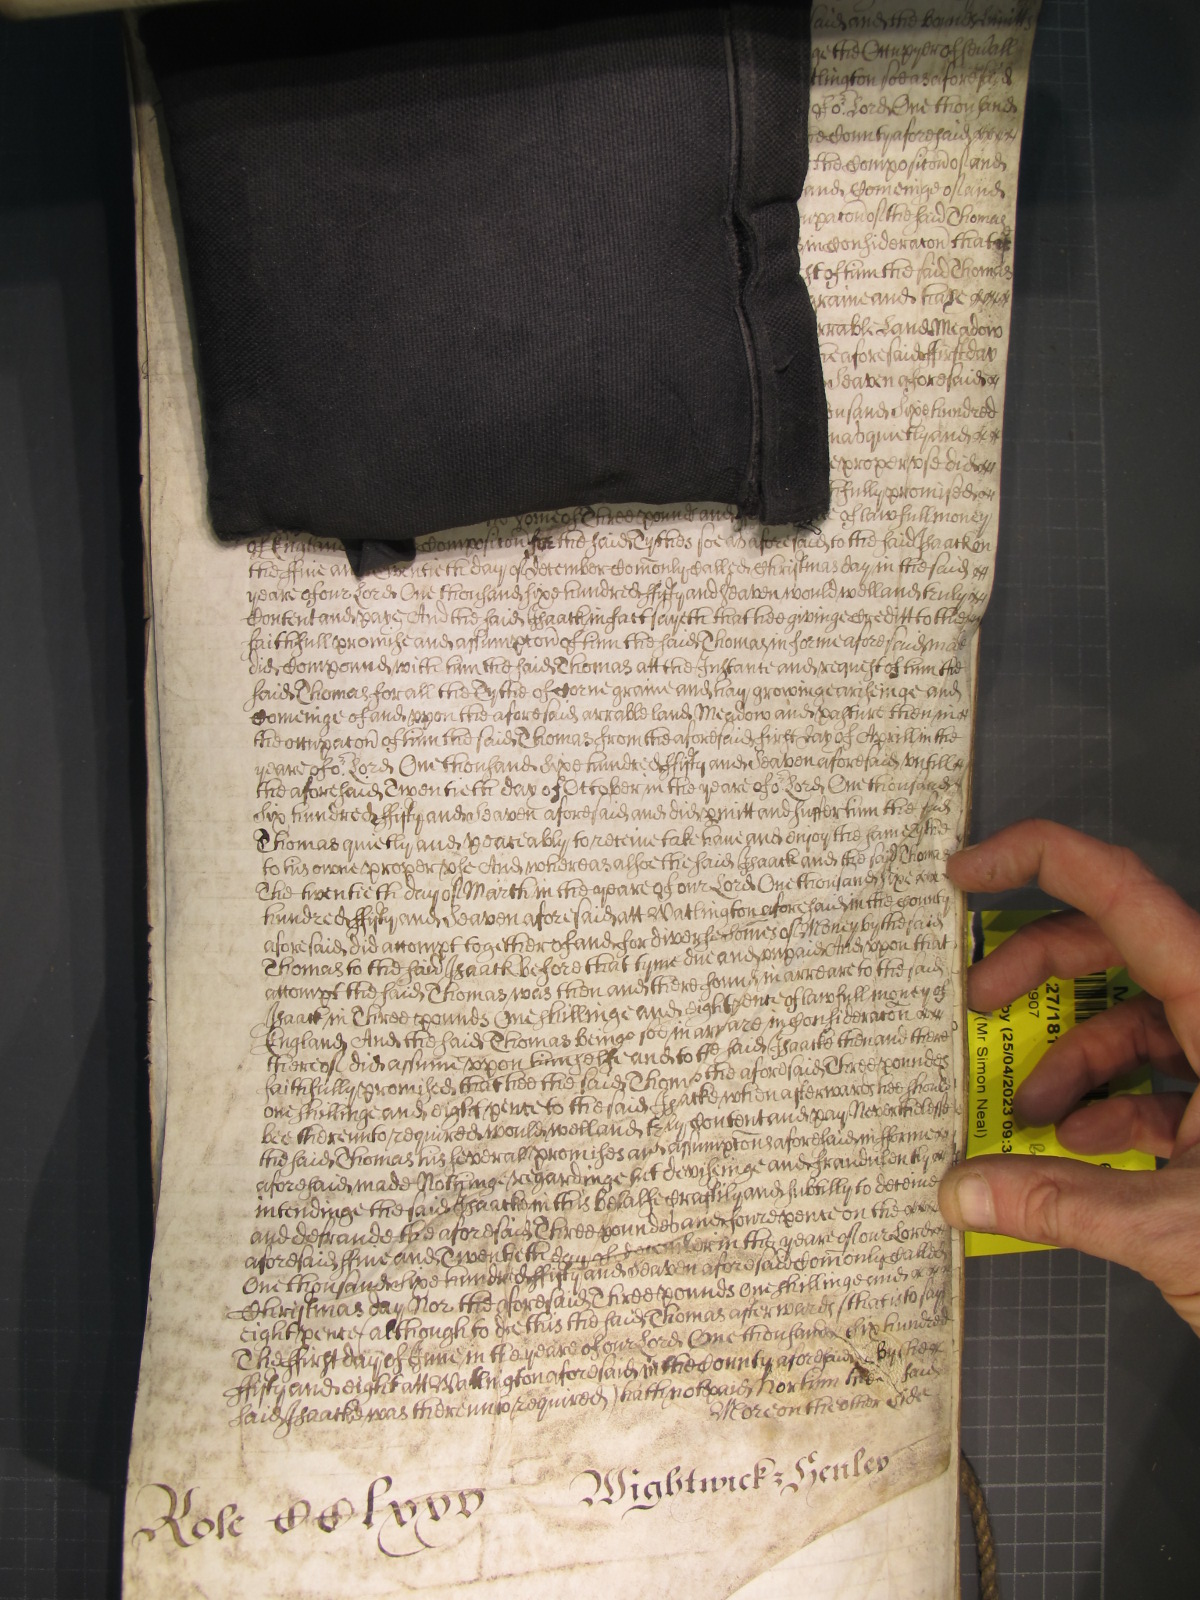 said and the bounds limitts
ge the Occupyer of severall
tlington soe as aforesaid
of or Lord One thousand
the County aforesaid
the Composicon of and
and Comeinge of and
upacon of the said Thomas
in Consideracon that
st of him the said Thomas
graine and haye
arrable Land Meadow
the aforesaid ffirst day
Seaven aforesaid
ousand Sixe hundred
quietly and
proper vse did
thfully promised
some of Three pound and of lawfull money
of England Composicon for the said Tythes soe as aforesaid to the said Isaack on
the ffive and Twentieth day of December Comonly Called Christmas day in the said
yeare of our Lord One thousand sixe hundred ffifty and Seaven would well and truly
Content and paye And the said Isaack in fact sayeth that hee givinge Creditt to the
faithfull promise and assumpcon of him the said Thomas in forme aforesaid made
did Compound with him the said Thomas att the Instance and request of him the
said Thomas for all the Tythe of Corne graine and hay growinge ariseinge and
Comeinge of and vppon the aforesaid arrable land Meadow and pasture then in
the occupacon of him the said Thomas from the aforesaid first day of Aprill in the
yeare of or Lord One thousand Sixe hundred ffifty and Seaven aforesaid vntill
the aforesaid Twentieth day of October in the yeare of or Lord One thousand
Six hundred ffifty and Seaven aforesaid and did pmitt and suffer him the said
Thomas quietly and peaceably to reteine take have and enjoy the same Tythe
to his owne proper vse And whereas alsoe the said Isaack and the said Thomas
The twentieth day of March in the yeare of our Lord One thousand Sixe
hundred ffifty and Seaven aforesaid att Watlington aforesaid in the County
aforesaid did accompt together of and for diverse somes of Money by the said
Thomas to the said Isaack before that tyme due and vnpaid And vpon that
accompt the said Thomas was then and there found in arreare to the said
Isaack in Three pounds One shillinge and eight pence of lawfull money of
England And the said Thomas beinge soe in arreare in Consideracon
thereof did assume vppon himselfe and to the said Isaacke then and there
faithfully promised that hee the said Thomas the aforesaid Three poundes
one shillinge and eight pence to the said Isaacke when afterwards hee should
bee thereunto required would well and truly Content and pay Neverthelesse
the said Thomas his severall promises and assumptons aforesaid in fforme
aforesaid made Nothinge regardinge but deviseinge and fraudulently
intendinge the said Isaacke in this behalfe Craftily and subtilly to deceive
and defraude the aforesaid Three pounde and foure pence on the
aforesaid ffive and Twentieth day of december in the yeare of our Lord
One thousand Sixe hundred ffifty and Seaven aforesaid Comonly Called
Christmas day Nor the aforesaid Three pounds one shillinge and
eight pence (although to doe this the said Thomas afterwards (that is to say)
The ffirst day of June in the yeare of our Lord One thousand Six hundred
ffifty and eight att Watlington aforesaid in the County aforesaid By the
said Isaacke was thereunto required) hath not paid Nor him the said
More on the other Side
Role CClxxv Wightwick: Henley
27/181
907
by (25/04/2023 09:3
(Mr Simon Neal)